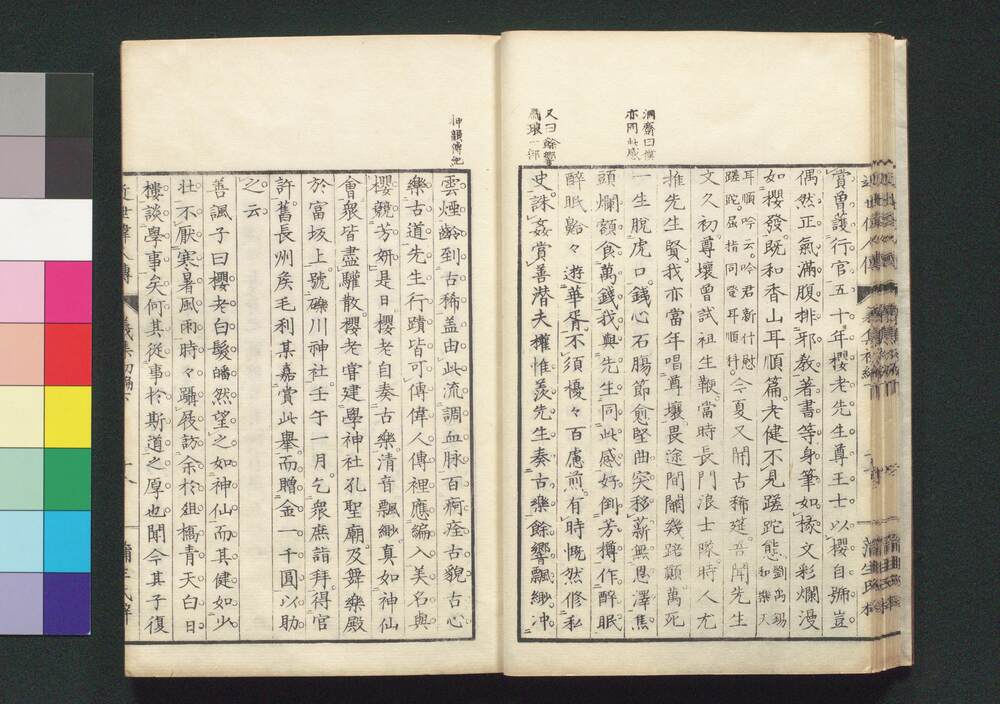 洞齋曰模
亦同此感
又曰餘響
賞曾護行官五十年櫻老先生尊王士以櫻自號豈
偶然正氣滿腹排邪教著書等身筆如椽文彩爛漫
如櫻發既和香山耳順篇老健不見蹉跎態
耳順吟云吟君新什慰
蹉跎屈指同登耳順科今夏又開古稀筵吾聞先生
文久初尊壞曾試祖生鞭當時長門浪士隊時人尤
推先生賢我亦當年唱尊壤畏途間關幾踣顛萬死
一生脫虎口錢心石腸節愈堅曲突移薪無恩澤焦
頭爛額食萬錢我與先生同此感好倒芳樽作醉眠
醉眠齁々遊華胥不須擾々百慮煎有時慨然修私
史誅姦賞善潛夫權惟羨先生奏古樂餘響飄緲冲
雲煙齡到古稀蓋由此流調血脉百痾痊古貌古心
樂古道先生行蹟皆可傳偉人傳裡應編入美名與
櫻競芳妍是日櫻老自奏古樂清音飄緲真如神仙
會衆皆盡驩散櫻老嘗建學神社孔聖廟及舞樂殿
於富坂上號礫川神社壬午一月乞衆庶詣拜得官
許舊長州矦毛利某嘉賞此擧而贈金一千圓以助
之云
善諷子曰櫻老白髮皤然望之如神仙而其健如少
壯不厭寒暑風雨時々躡屐訪余於組橋青天白日
樓談學事矣何其從事於斯道之厚也聞今其子復
近世偉人傳
義集初編下
蒲生氏梓